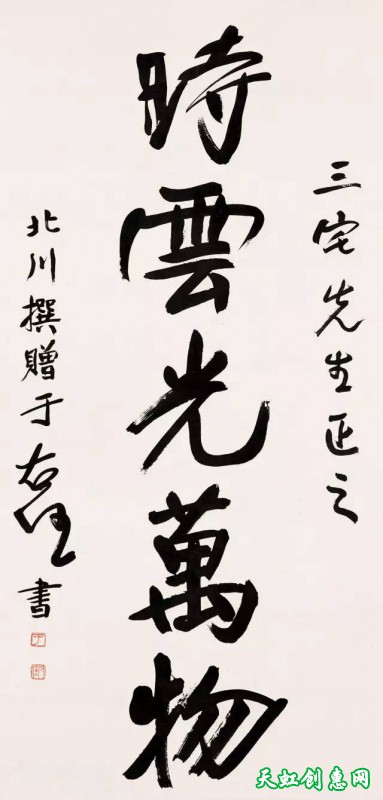 三宅先生正之
時雲光萬物
北川撰贈于右任書
天虹创惠网